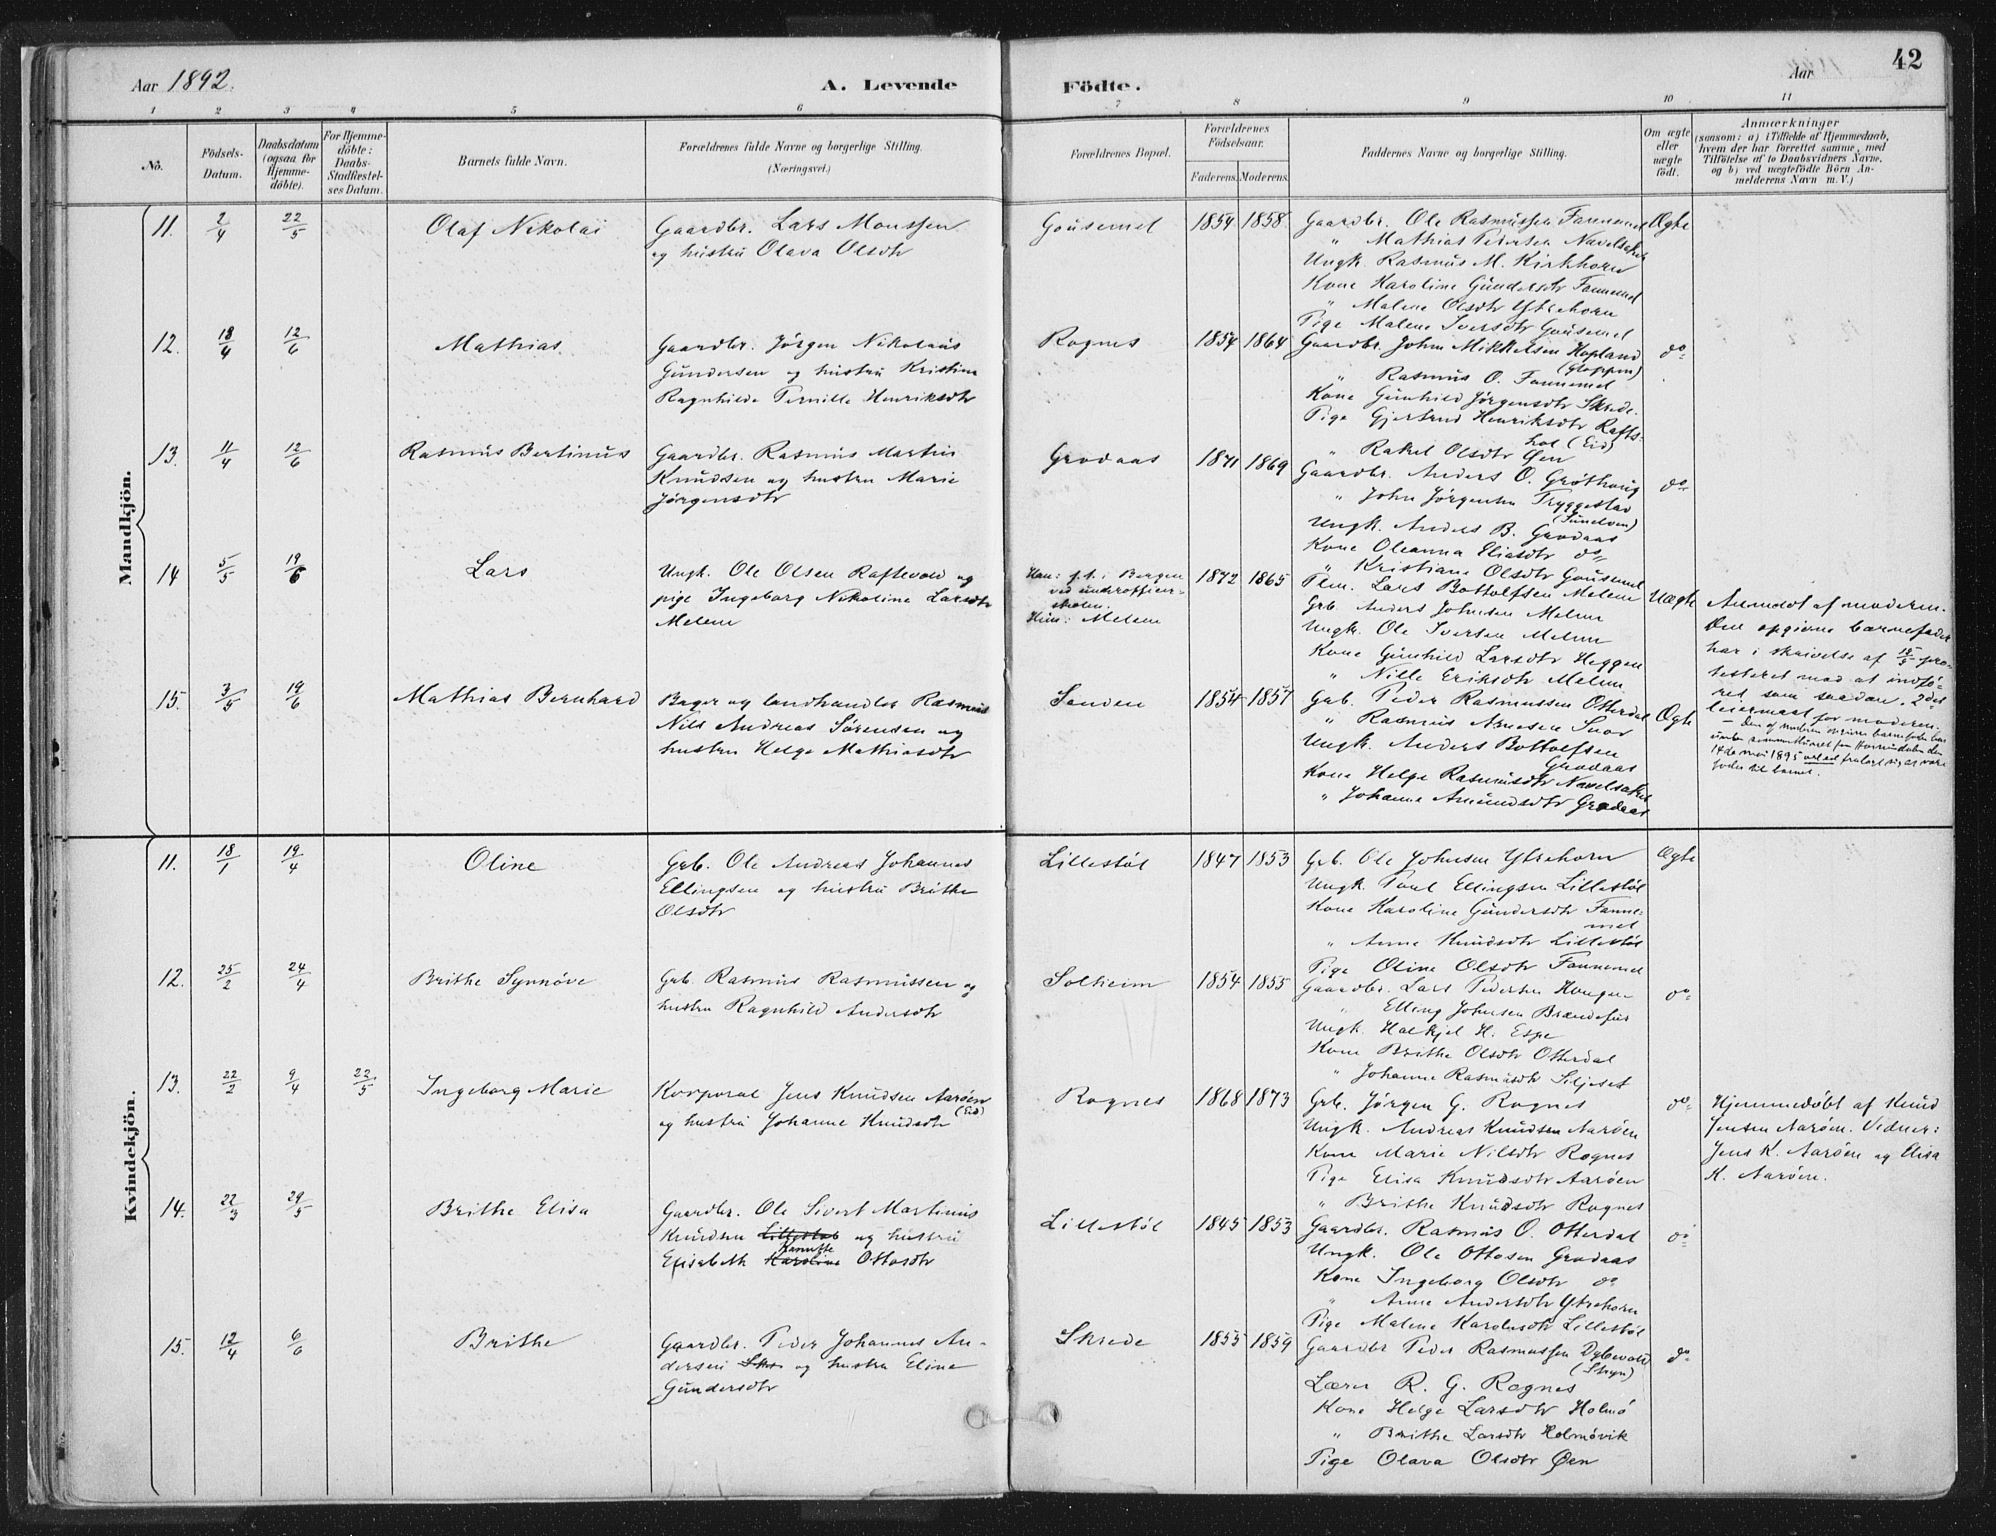 Aar 1892.
A. Levende Födte.
Aar
42
1 2 3 4 5 6 7 8 9 10 11
No.
Födsels-Datum.
Daabsdatum (ogsaa for Hjemme-döbte).
For Hjemme-döbte: Daabs-Stadfæstel-ses Datum.
Barnets fulde Navn.
Forældrenes fulde Navne og borgerlige Stilling. (Næringsvei.)
Forældrenes Bopæl.
Forældrenes Födselsaar.
Faderens. Moderens.
Faddernes Navne og borgerlige Stilling.
Om ægte eller uægte födt.
Anmærkninger
(saasom: a) i Tilfælde af Hjemmedaab, hvem der har forrettet samme, med Tilföielse af to Daabsvidners Navne, og b) ved uægtefödte Börn An-melderens Navn m. V.)
Mandkjön.
11. 2/4 22/5 Olaf Nikolai
Gaardbr. Lars Monssen
og hustru Olava Olsdtr
Gausemel 1854 1858
Gaardbr. Ole Rasmussen Fannemel
" Mathias Pedersen Navelsaker
Ungk. Rasmus M. Kirkhorn
Kone Karoline Gundersdtr Fannemel
" Malene Olsdtr Ytrehorn
Pige Malene Iversdtr Gausemel
Ægte
12. 18/4 12/6 Mathias
Gaardbr. Jørgen Nikolaus
Gundersen og hustru Kristine
Ragnhilde Pernille Henriksdtr
Rognes 1854 1864
Gaardbr. John Mikkelsen Hopland
(Gloppen)
" Rasmus O. Fannemel
Kone Gunhild Jørgensdtr Skrede.
Pige Gjertrud Henriksdtr Rafts-
hol (Eid)
" Rakel Olsdtr Øen
do
13. 11/4 12/6 Rasmus Bertinus
Gaardbr. Rasmus Martin
Knudsen og hustru Marie
Jørgensdtr
Grodaas 1871 1869
Gaardbr. Anders O. Grøthaug
" John Jørgensen Tryggestad
(Sunelven)
Ungk. Anders B. Grodaas
Kone Oleanna Eliasdtr do
" Kristiane Olsdtr Gausemel
do
14 5/5 19/6 Lars
Ungk. Ole Olsen Raftevold og
pige Ingeborg Nikoline Larsdtr
Melem
Han: p.t. i Bergen
ved underofficer-
skolen.
Hun: Melem
1872 1865
Flm. Lars Bottolfsen Melem
Grb. Anders Johnsen Melem
Ungk. Ole Iversen Melem
Kone Gunhild Larsdtr Heggen
" Nille Eriksdtr Melem
Uægte
Anmeldt af moderen.
Den opgivne barnefader
har i skrivelse af 15/5 pro-
testeret mod at indfø-
res som saadan. 2det
leiermaal for moderen.
14de mai 1895 ved ed fralagt sig at være
fader til barnet.
15. 3/5 19/6 Mathias Bernhard
Bager og landhandler Rasmus
Nils Andreas Sørensen og
hustru Helge Mathiasdtr
Sanden 1854 1857
Grb. Peder Rasmussen Otterdal
" Rasmus Arnesen Svor
Ungk. Anders Bottolfsen
Grodaas
Kone Helge Rasmusdtr Navelsaker
" Johanne Amundsdtr Grodaas
Ægte
Kvindekjön.
11. 18/1 19/4 Oline
Grb. Ole Andreas Johannes
Ellingsen og hustru Brithe
Olsdtr
Lillestøl 1847 1853
Grb. Ole Johnsen Ytrehorn
Ungk. Paul Ellingsen Lillestøl
Kone Karoline Gundersdtr Fanne-
mel
" Anne Knudsdtr Lillestøl
Pige Oline Olsdtr Fannemel
Ægte
12. 25/2 24/4 Brithe Synnøve
Grb Rasmus Rasmussen og
hustru Ragnhild Andersdtr
Solheim 1854 1855
Gaardbr. Lars Pedersen Haugen
" Elling Johnsen Brændefur
Ungk. Halkjel H. Espe
Kone Brithe Olsdtr Otterdal
" Johanne Rasmusdtr Siljeset
do
13. 22/2 9/4 22/5 Ingeborg Marie
Korporal Jens Knudsen Aarøen
(Eid)
og hustru Johanne Knudsdtr
Rognes 1868 1873
Grb. Jørgen G. Rognes
Ungk. Andreas Knudsen Aarøen
Kone Marie Nilsdtr Rognes
Pige Elisa Knudsdtr Aarøen
" Brithe Knudsdtr Rognes
do
Hjemmedøbt af Knud
Jensen Aarøen. Vidner:
Jens K. Aarøen og Elisa
K. Aarøen.
14. 22/3 29/5 Brithe Elisa
Gaardbr. Ole Sivert Martinus
Knudsen Lillestøl og hustru
Elisabeth Karoline Kanutte Ottosdtr
Lillestøl 1845 1853
Gaardbr. Rasmus O. Otterdal
Ungk. Ole Ottosen Grodaas
Kone Ingeborg Olsdtr do
" Anne Andersdtr Ytrehorn
Pige Malene Karolusdtr Lillestøl
do
15. 12/4 6/6 Brithe
Gaardbr. Peder Johannes An-
dersen og hustru Eline
Gundersdtr
Skrede 1855 1859
Gaardbr Peder Rasmussen Dybevold
(Stryn)
Lærer R. G. Rognes
Kone Helge Larsdtr Holmø
" Brithe Larsdtr Holmøvik
Pige Olava Olsdtr Øen
do